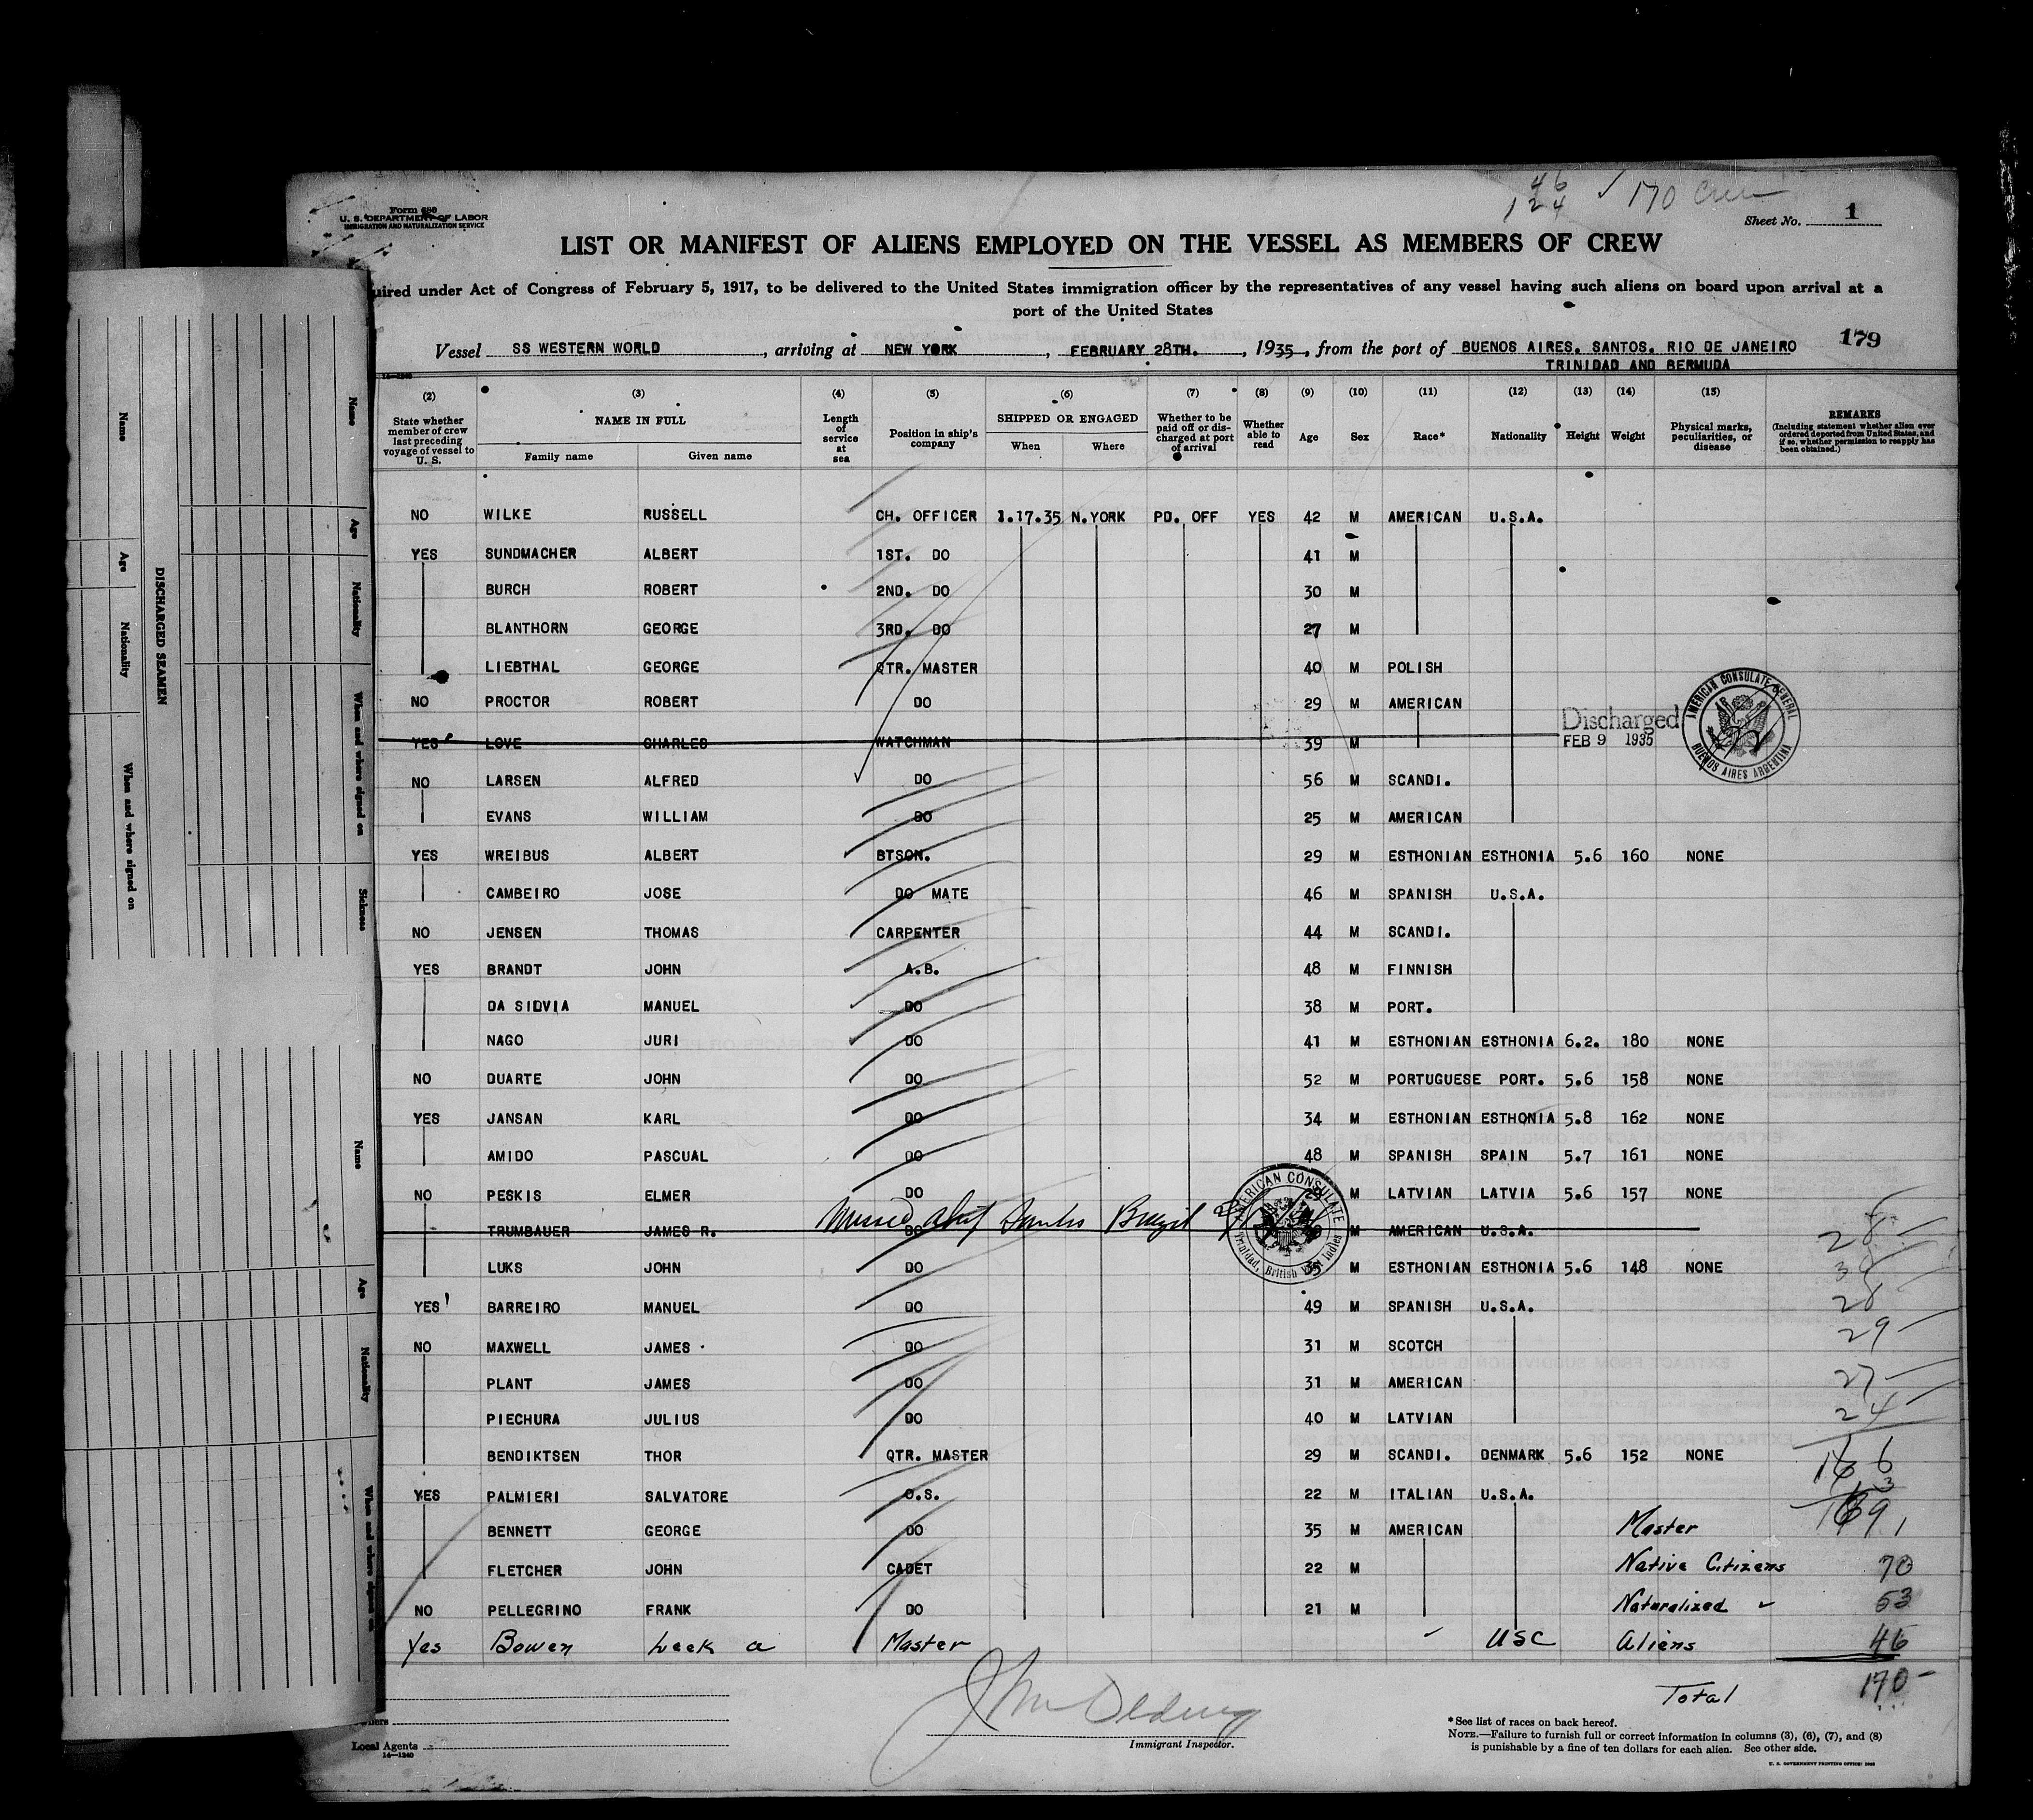 46
124 ✓ 170 Crew
Form 680
U. S. DEPARTMENT OF LABOR
IMMIGRATION AND NATURALIZATION SERVICE
Sheet No. 1
LIST OR MANIFEST OF ALIENS EMPLOYED ON THE VESSEL AS MEMBERS OF CREW
uired under Act of Congress of February 5, 1917, to be delivered to the United States immigration officer by the representatives of any vessel having such aliens on board upon arrival at a
port of the United States
179
Vessel SS WESTERN WORLD, arriving at NEW YORK, FEBRUARY 28TH., 1935, from the port of BUENOS AIRES. SANTOS. RIO DE JANEIRO
TRINIDAD AND BERMUDA
14—1240
(2) (3) (4) (5) (6) (7) (8) (9) (10) (11) (12) (13) (14) (15)
State whether member of crew last preceding voyage of vessel to U. S.
NAME IN FULL
Family name
Given name
Length of service at sea
Position in ship's company
SHIPPED OR ENGAGED
When
Where
Whether to be paid off or discharged at port of arrival
Whether able to read
Age
Sex
Race*
Nationality
Height
Weight
Physical marks, peculiarities, or disease
REMARKS
(Including statement whether alien ever ordered deported from United States, and if so, whether permission to reapply has been obtained.)
NO WILKE RUSSELL CH. OFFICER 1.17.35 N.YORK PD. OFF YES 42 M AMERICAN U.S.A.
YES SUNDMACHER ALBERT 1ST. DO 41 M
BURCH ROBERT 2ND. DO 30 M
BLANTHORN GEORGE 3RD. DO 27 M
LIEBTHAL GEORGE QTR. MASTER 40 M POLISH
NO PROCTOR ROBERT DO 29 M AMERICAN
YES LOVE CHARLES WATCHMAN 39 M
Discharged
FEB 9 1935
AMERICAN CONSULATE GENERAL
BUENOS AIRES ARGENTINA
NO LARSEN ALFRED DO 56 M SCANDI.
EVANS WILLIAM DO 25 M AMERICAN
YES WREIBUS ALBERT BTSON. 29 M ESTHONIAN ESTHONIA 5.6 160 NONE
CAMBEIRO JOSE DO MATE 46 M SPANISH U.S.A.
NO JENSEN THOMAS CARPENTER 44 M SCANDI.
YES BRANDT JOHN A.B. 48 M FINNISH
DA SILVIA MANUEL DO 38 M PORT.
NAGO JURI DO 41 M ESTHONIAN ESTHONIA 6.2. 180 NONE
NO DUARTE JOHN DO 52 M PORTUGUESE PORT. 5.6 158 NONE
YES JANSAN KARL DO 34 M ESTHONIAN ESTHONIA 5.8 162 NONE
AMIDO PASCUAL DO 48 M SPANISH SPAIN 5.7 161 NONE
NO PESKIS ELMER DO M LATVIAN LATVIA 5.6 157 NONE
Missed ship Santos Brazil
AMERICAN CONSULATE
Trinidad, British West Indies
TRUMBAUER JAMES R. DO M AMERICAN U.S.A.
28
LUKS JOHN DO 35 M ESTHONIAN ESTHONIA 5.6 148 NONE
YES BARREIRO MANUEL DO 49 M SPANISH U.S.A. 28
NO MAXWELL JAMES DO 31 M SCOTCH 29
PLANT JAMES DO 31 M AMERICAN 27
PIECHURA JULIUS DO 40 M LATVIAN 24
BENDIKTSEN THOR QTR. MASTER 29 M SCANDI. DENMARK 5.6 152 NONE 166
YES PALMIERI SALVATORE O.S. 22 M ITALIAN U.S.A. 3
BENNETT GEORGE DO 35 M AMERICAN Master 1
FLETCHER JOHN CADET 22 M Native Citizens 70
NO PELLEGRINO FRANK DO 21 M Naturalized 53
Yes Bowen Leek a Master USC Aliens 46
Total 170
Immigrant Inspector.
Owners
Local Agents
14—1240
*See list of races on back hereof.
NOTE.—Failure to furnish full or correct information in columns (3), (6), (7), and (8)
is punishable by a fine of ten dollars for each alien. See other side.
U. S. GOVERNMENT PRINTING OFFICE
DISCHARGED SEAMEN
Name
Age
Nationality
When and where signed on
Name
Age
Nationality
When and where signed on
Sickness
Name
Age
Nationality
When and where signed on